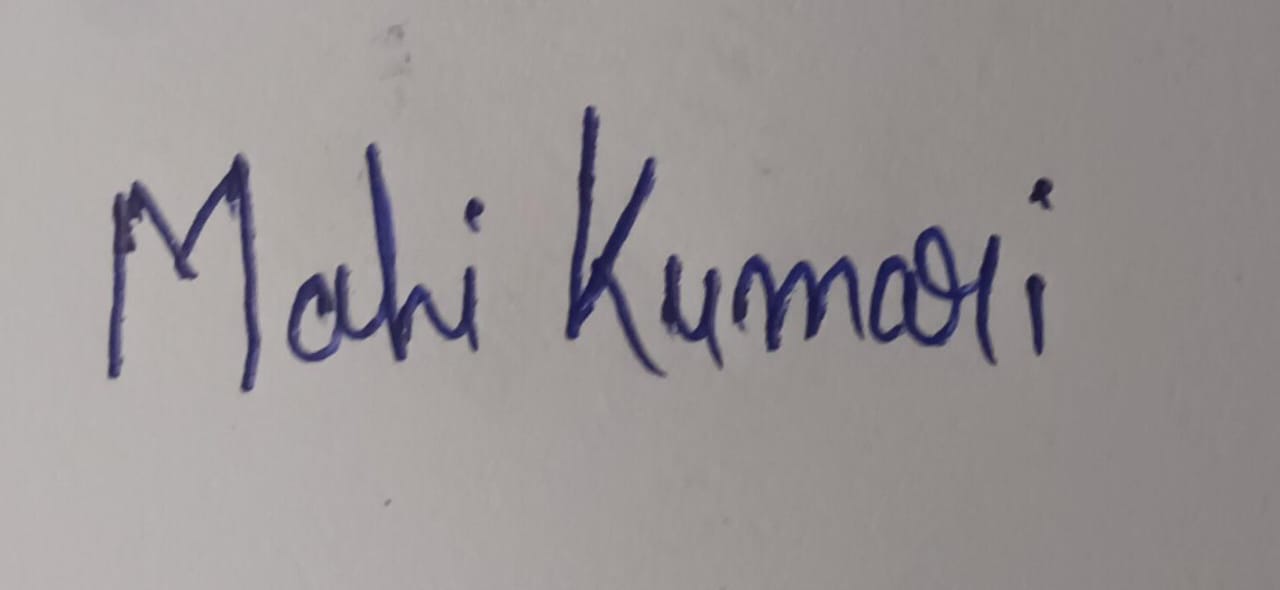 Mahi Kumari